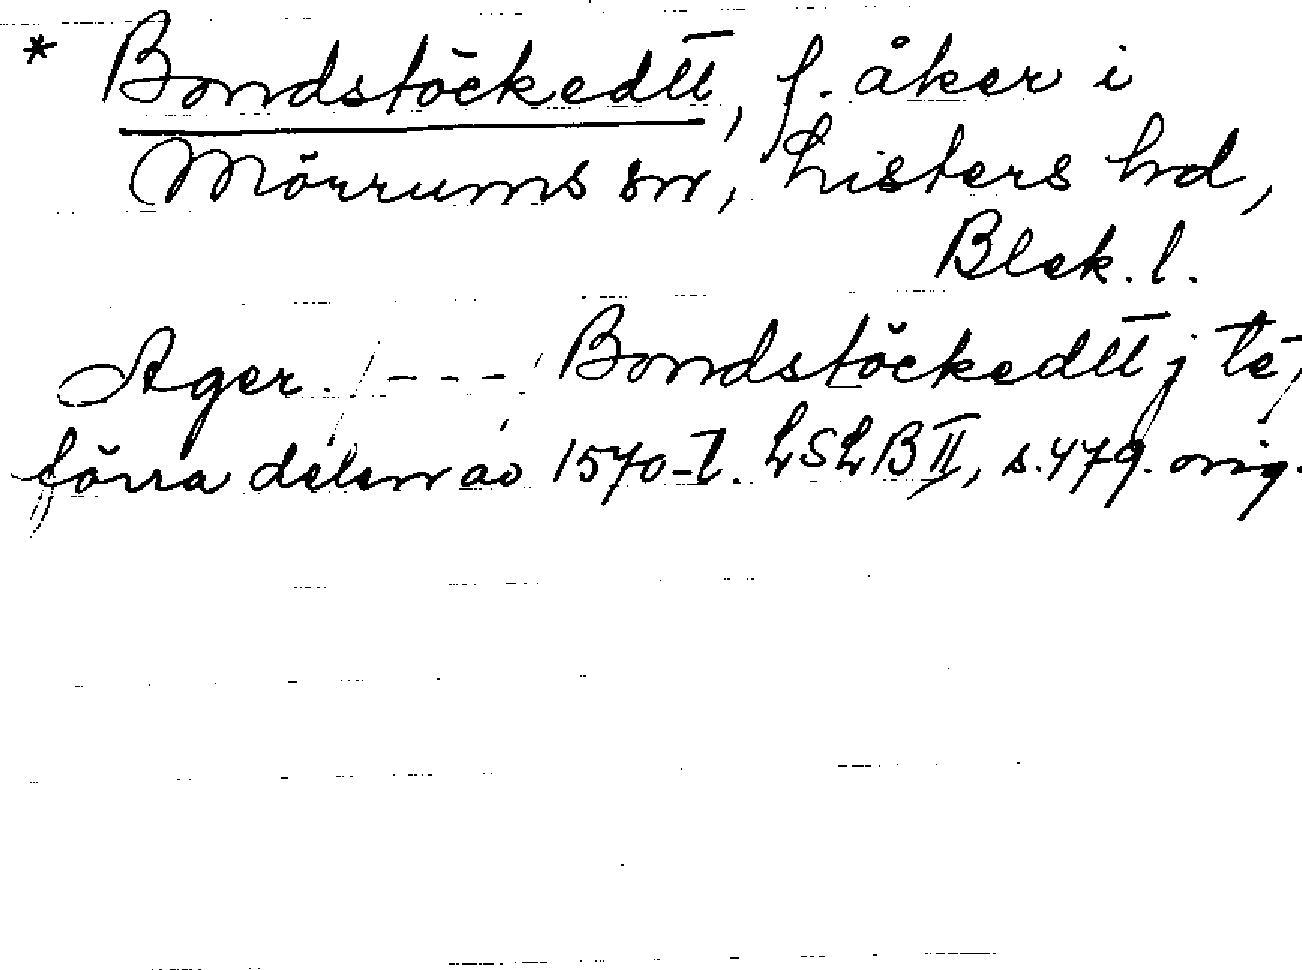 * Bondstöckedtt, f. åker i
Mörrums sn, Listers hd,
Blek. l.
Ager /---/ Bondstöckedtt j te,
förra delen av 1570-t. LSLB II, s. 479. orig.